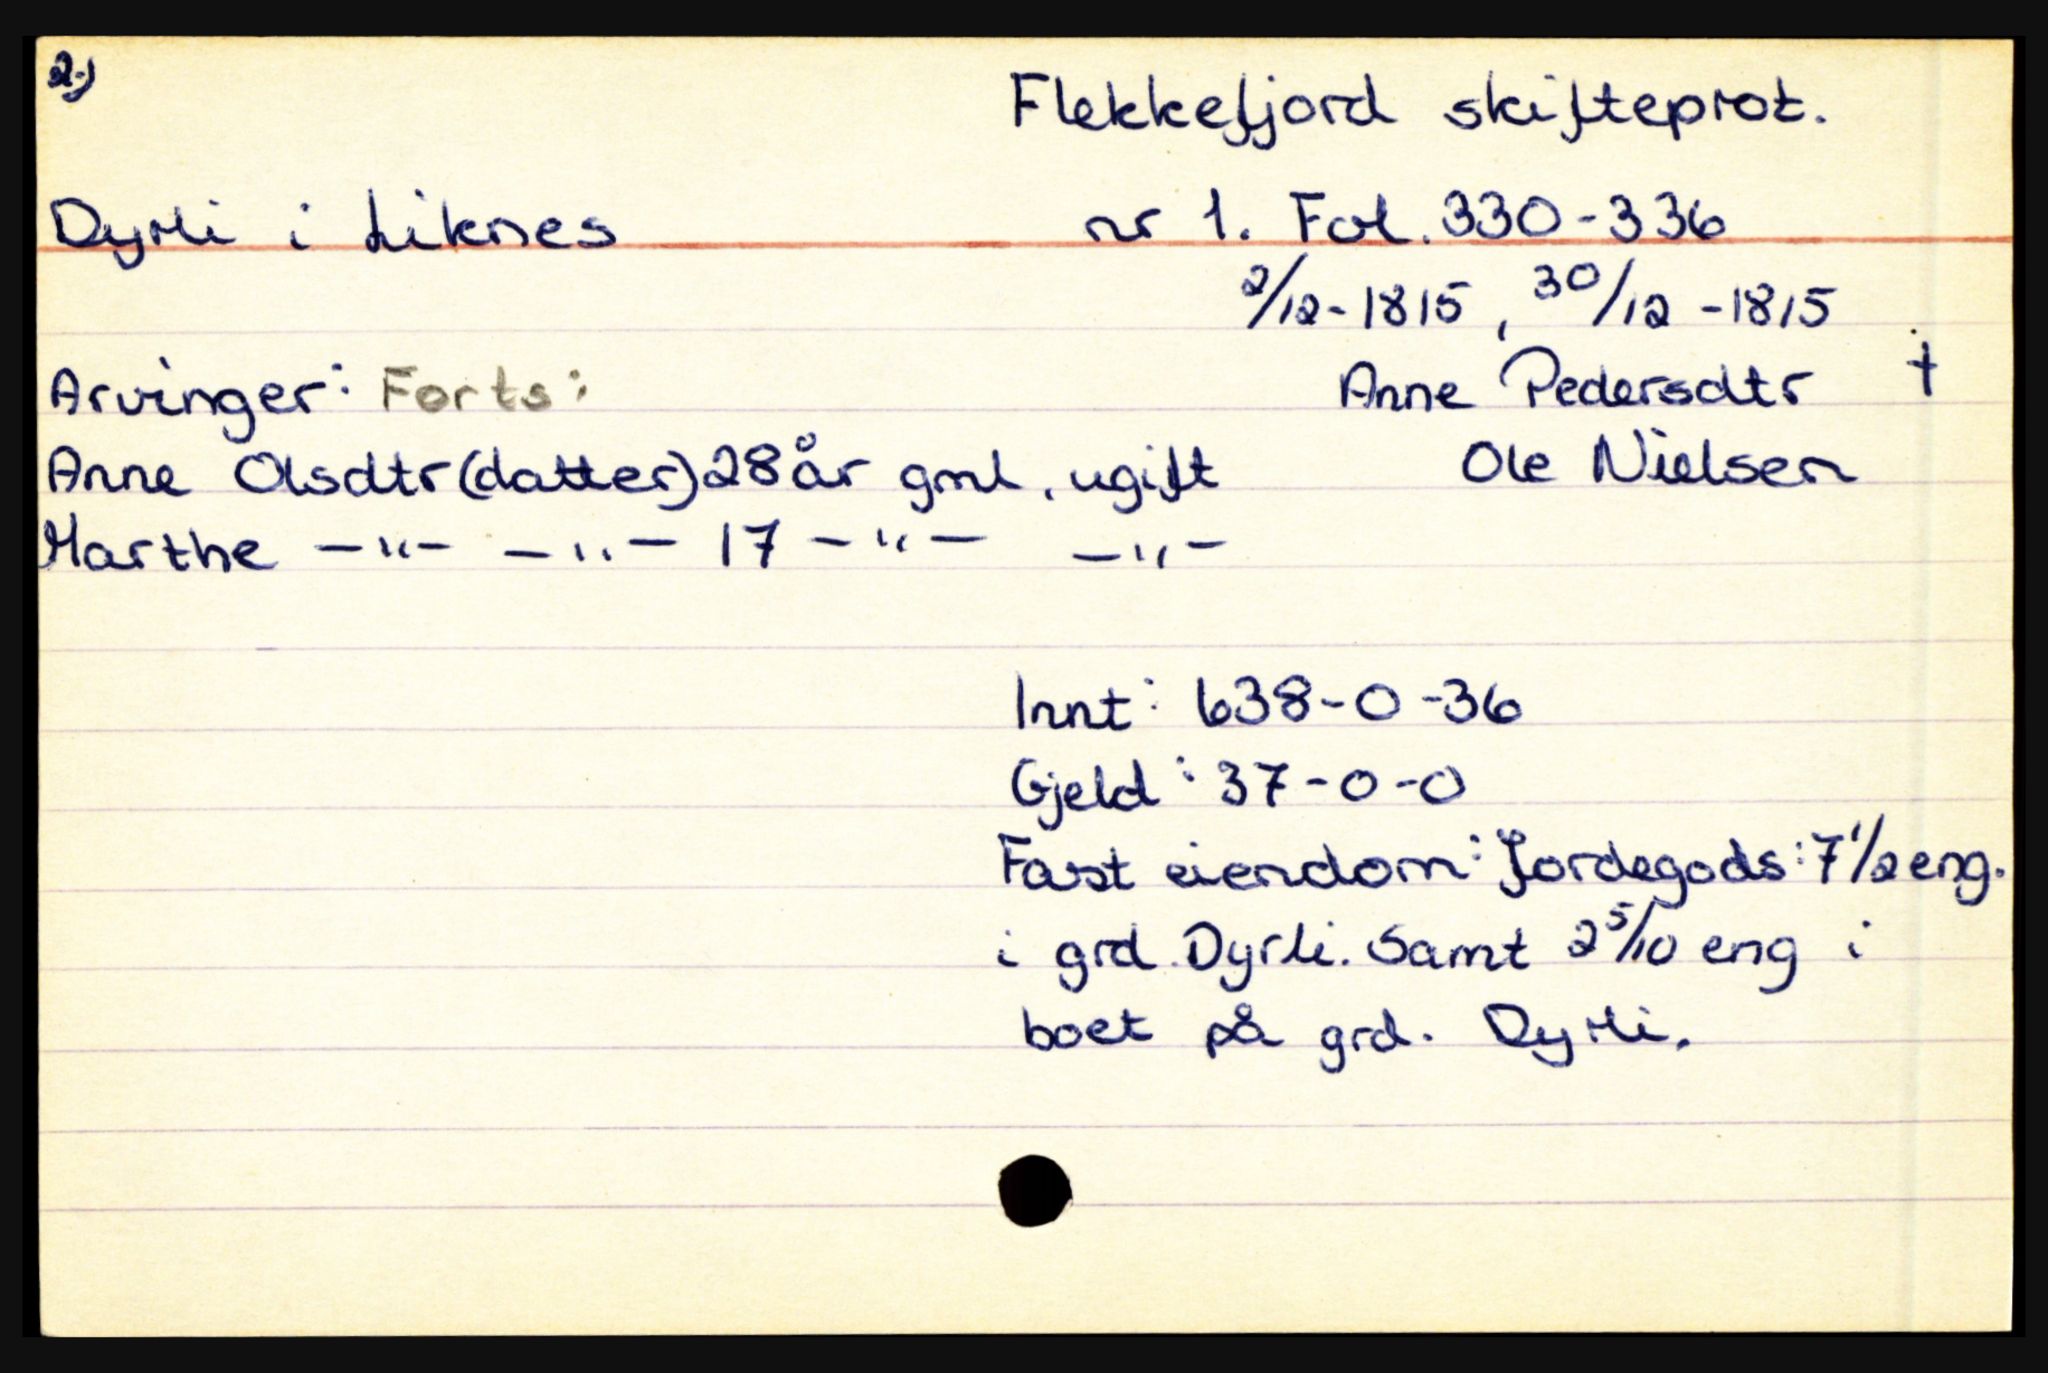 2.)
Flekkefjord skifteprot.
Dyrli i Liknes nr 1. Fol. 330-336
2/12-1815, 30/12 -1815
Arvinger: Forts: Anne Pedersdtr †
Anne Olsdtr (datter) 28 år gml. ugift Ole Nielsen
Marthe -"- -"- 17 -"- -"-
Innt: 638-0-36
Gjeld: 37-0-0
Fast eiendom: Jordegods: 7 1/2 eng.
i grd. Dyrli. Samt 2 5/10 eng i
boet på grd. Dyrli.